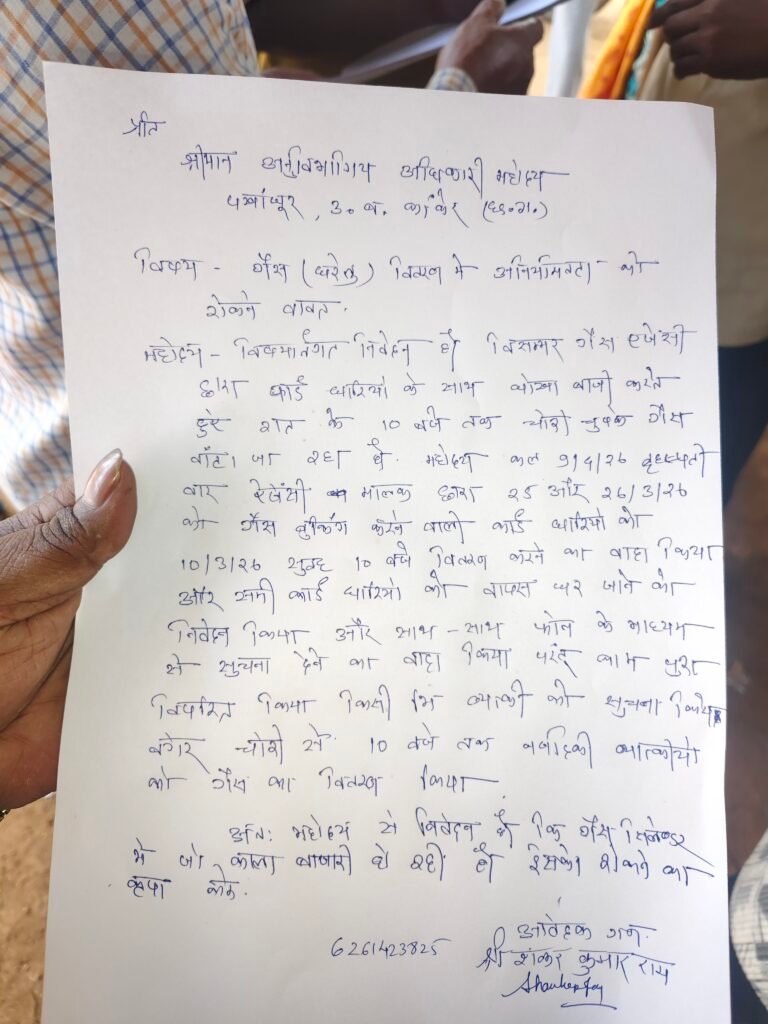 प्रति
श्रीमान अनुविभागिय अधिकारी महोदय
पखांजूर, उ. ब. कांकेर (छ.ग.)
विषय - गैस (घरेलु) वितरण मे अनियमितता को
रोकने बाबत.
महोदय - विषयांर्तगत निवेदन है विसम्भर गैस एजेंसी
द्वारा कार्ड धारियो के साथ धोखा बाजी करते
हुए रात के 10 बजे तक चोरी चुपके गैस
बाँटा जा रहा है. महोदय कल 9/4/26 बृहस्पती
वार ऐजेंसी मालक द्वारा 25 और 26/3/26
को गैस बुकिंग करने वालो कार्ड धारियो को
10/3/26 सुबह 10 बजे वितरण करने का वादा किया
और सभी कार्ड धारियो को वापस घर जाने का
निवेदन किया और साथ-साथ फोन के माध्यम
से सुचना देने का वादा किया परंतू काम पुरा
विपरित किया किसी भि व्यक्ती को सुचना किये
बगैर चोरी से 10 बजे तक नजदिकी व्यक्तीयो
को गैस का वितरण किया
अतः महोदय से निवेदन है कि गैस सिलेण्डर
मे जो काला बाजारी हो रही है इसको रोकने का
कृपा करे.
आवेदक गण.
6261423825 श्री शंकर कुमार राय